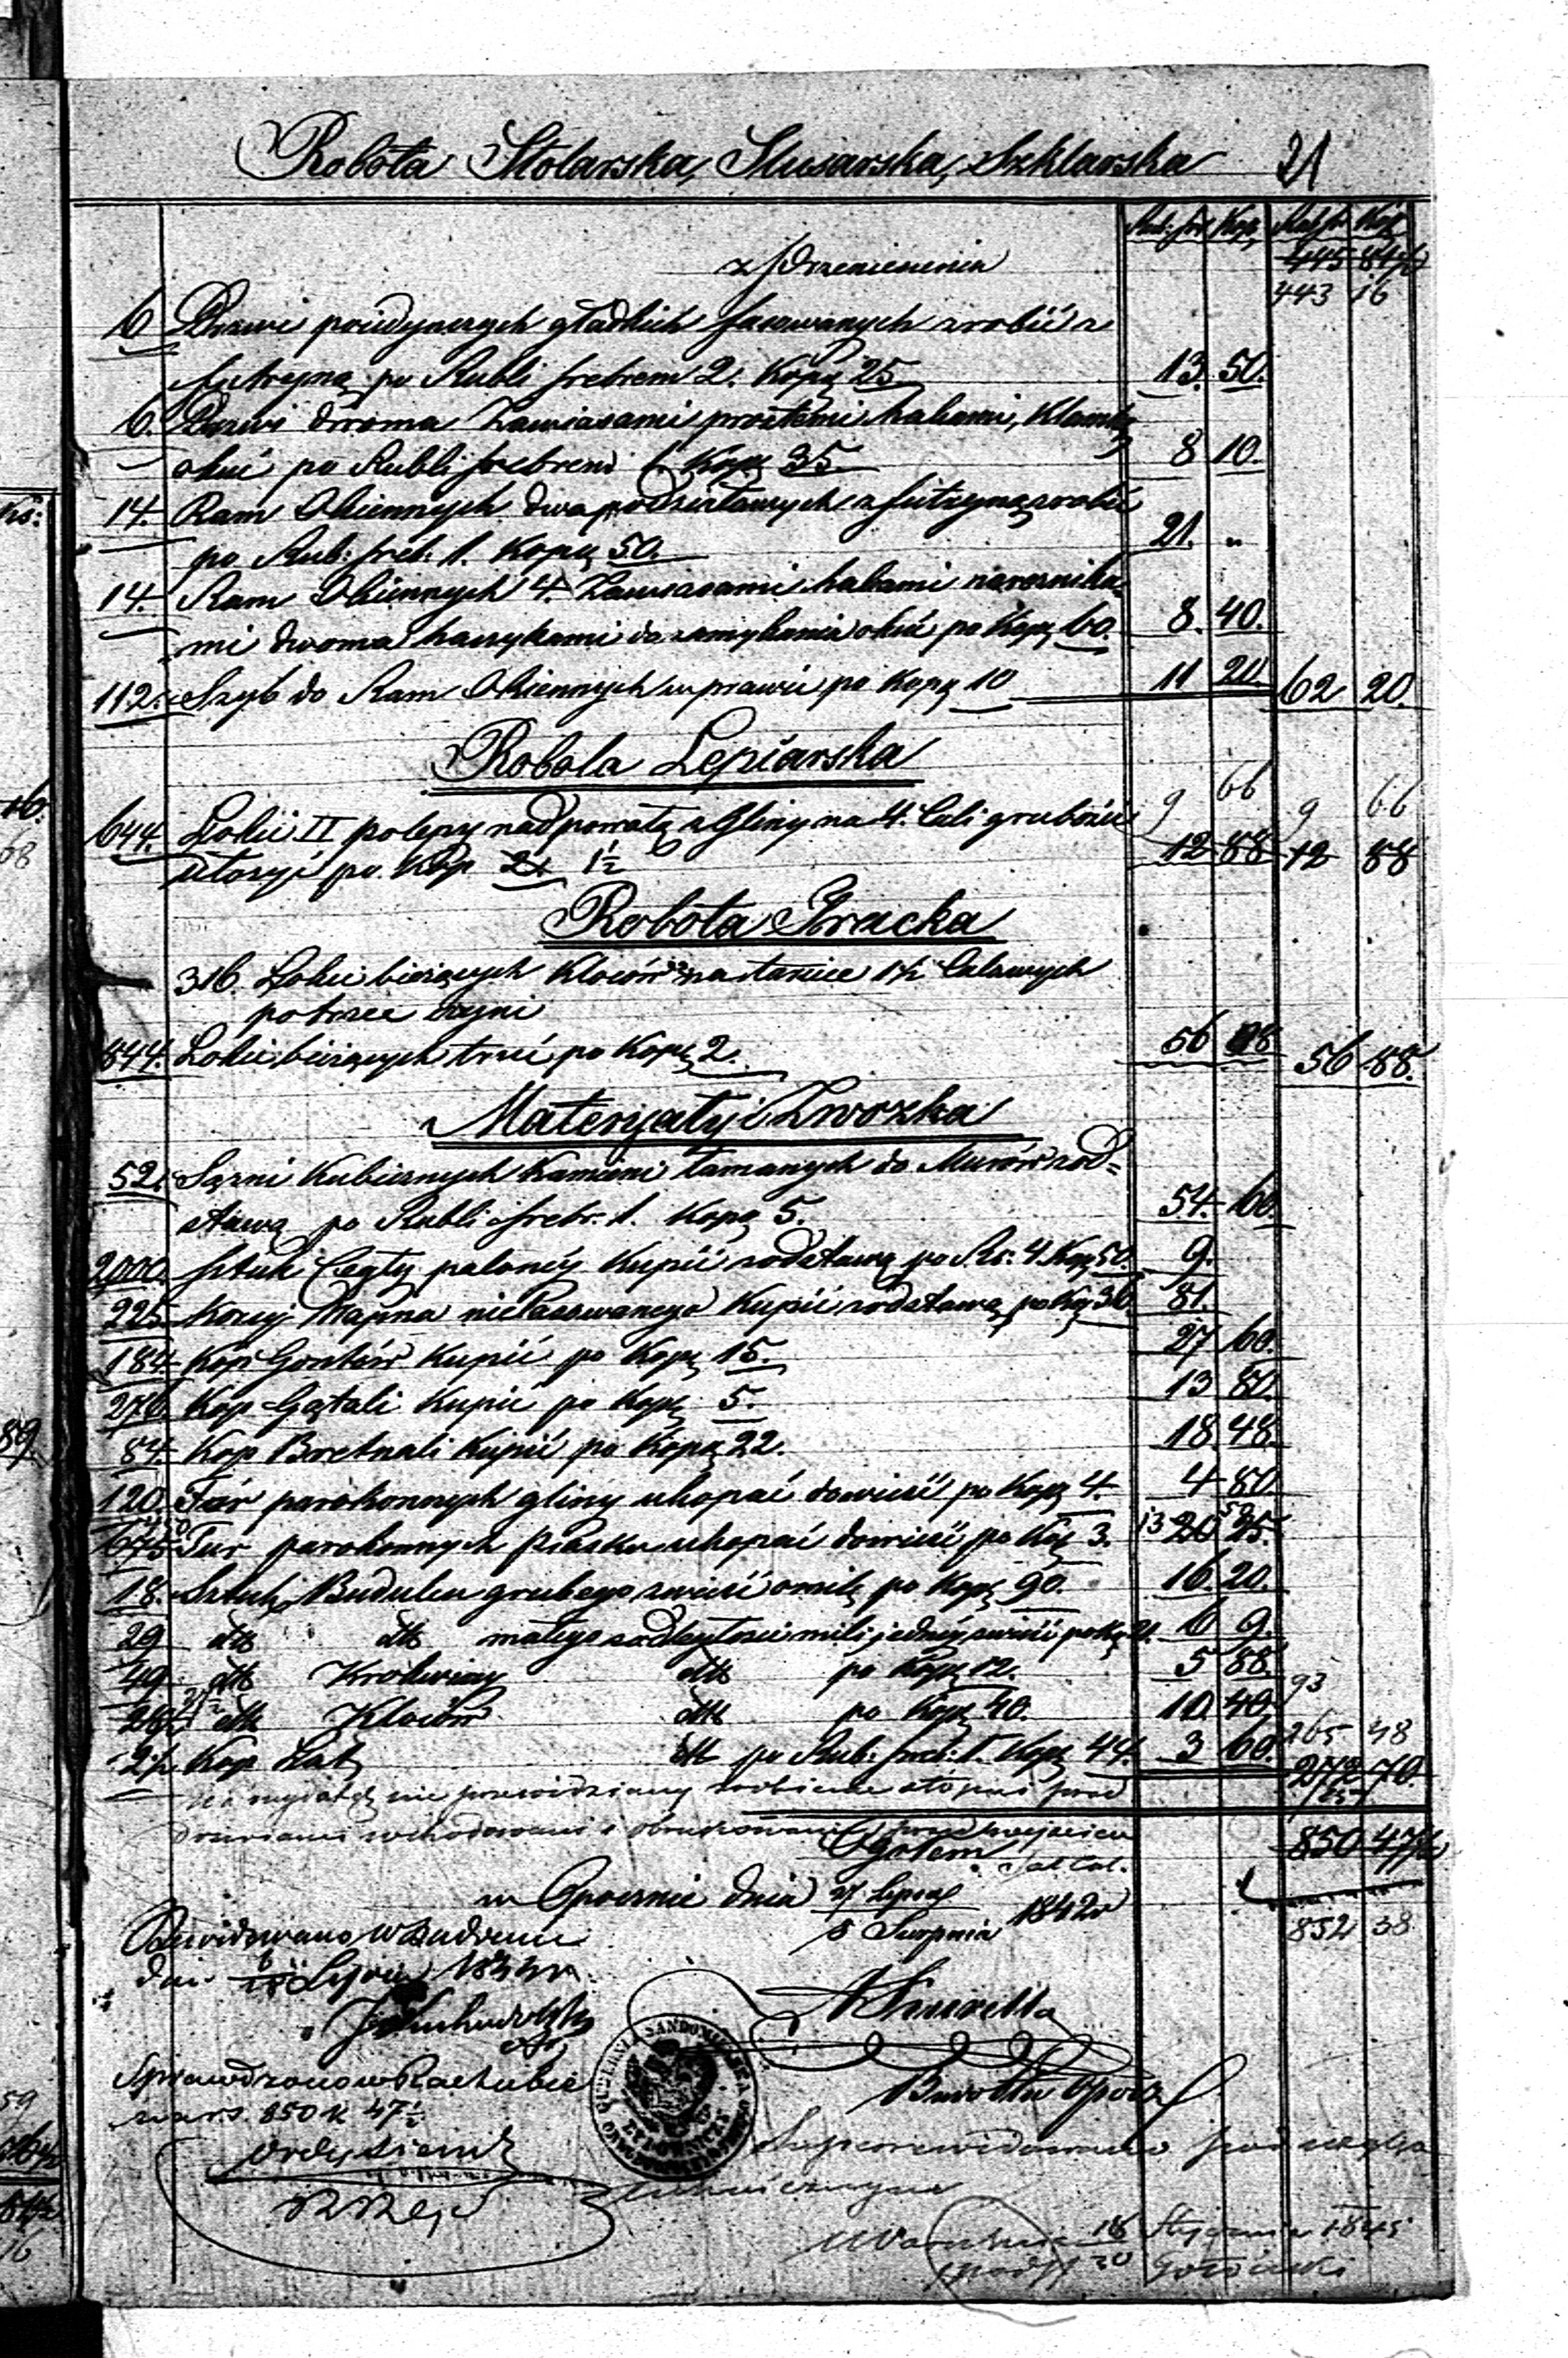 Robota Stolarska, Slusarska, Szklarska 21
Rub: sr: Kop. Rub sr Kop
z przeniesienia 445 84½
443 16
6 Drzwi poiedynczych gładkich fasowanych zrobić z
futryną po Rubli srebrem 2. Kopę 25 13. 50.
6. Drzwi dwoma Zawiasami prostemi hakami, Klamką
okuć po Rubli srebrem 1. Kopę 35 8 10.
14. Ram Okiennych dwa podziałowych z futryną zrobić
po Rub: sreb: 1. Kopę 50. 21. "
14. Ram Okiennych 4. Zawiasami hakami narożnika-
mi dwoma haczykami do zamykania okuć po Kopę 60. 8. 40.
112. Szyb do Ram Okiennych wprawić po Kopę 10 11 20. 62 20.
Robota Lepiarska
9 66 9 66
644. Łokci II polepy nad powałą z Gliny na 4. Cali grubości 12 88 12 88
ułożyć po Kop 2. 1½
Robota Tracka
316. Łokci bieżących Kloców na tarcice 1½ Calowych
potrzee czyni
844. Łokci bieżących trzeć po Kopę 2. 56 88 56 88.
Materyały i Zwozka
52. Sążni Kubicznych Kamieni łamanych do Murów z od=
stawą po Rubli srebr. 1. Kopę 5. 54. 60.
2,000. sztuk Cegły palonéy Kupić z odstawą po R. sr. 4. Kop 50. 9.
225. Korcy Wapna nielasowanego Kupić z odstawą po Kop 36 81.
184. Kop Gontów Kupić po Kopę 15. 27 60.
276. Kop Gątali Kupić po Kopę 5. 13 80.
84. Kop Bretnali Kupić po Kopę 22. 18 48.
120. Fur parokonnych gliny ukopać dowieść po Kopę 4. 4 80
675 450 Fur parokonnych Piasku ukopać dowieść po Kop 3. 13 50 20 25.
18. Sztuk Budulcu grubego zwieść o milę po Kopę 90. 16. 20.
29 dtt dtt małego z odległości mili jednéy zwieść po Kop 21. 6 9.
49 dtt Krokwiny dtt po Kopę 12. 5 88.
26 dtt Kloców dtt po Kopę 40. 10 40.
93
265 48
2½ Kop Łat dtt po Rub: sreb: 1. Kopę 44. 3 60. 272 70.
Na wydatek nie przewidziany zrobienie stopni przed
drzwiami wchodowemi
Ogołem 850 47½
w Opocznie dnia 27 Lipca / 8 Sierpnia 1842r
852 38
Rewidowano w Radomiu
dnia Lipca
Budown Opocz
Sprawdzono w Rachubie
na rs. 850 K 47½
GUBERNIA SANDOMIERSKA
Superrewidowano pod względem
technicznym
w Warszawie 18/30 Stycznia 1845